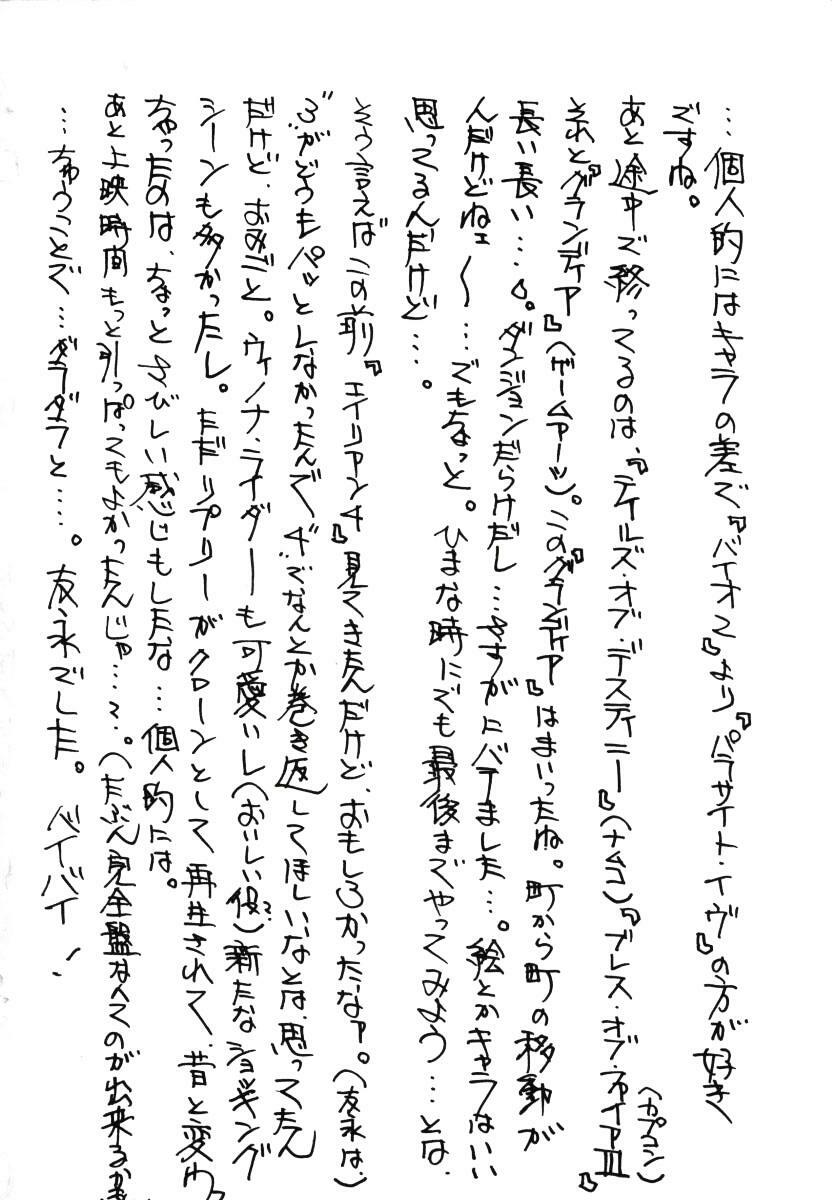 …個人的にはキャラの差で『バイオ2』より『パラサイト・イヴ』の方が好き
ですね。
あと途中で終ってるのは、『テイルズ・オブ・デスティニー』(ナムコ)『ブレス・オブ・ファイアⅢ』(カプコン)
それと『グランディア』(ゲームアーツ)。この『グランディア』はまいったね。町から町の移動が
長い長い…。ダンジョンだらけだし…さすがにバテました…。絵とかキャラはいい
んだけどねェ〜…でもちょっと。ひまな時にでも最後までやってみよう…とは、
思ってるんだけど…。
そう言えばこの前『エイリアン4』見てきたんだけど、おもしろかったなァ。(友永は、)
"3"がどうもパッとしなかったんで、"4"でなんとか巻き返してほしいなとは、思ってたん
だけど、おみごと。ウィノナ・ライダーも可愛いし(おいしい役?)新たなショッキング
シーンも多かったし。ただリプリーがクローンとして再生されて、昔と変わっ
ちゃったのは、ちょっとさびしい感じもしたな…個人的には。
あと上映時間もっと引っぱってもよかったんじゃ…?。(たぶん完全盤なんてのが出来るか
…ちゅうことで…ダラダラと…。友永でした。バイバイ!